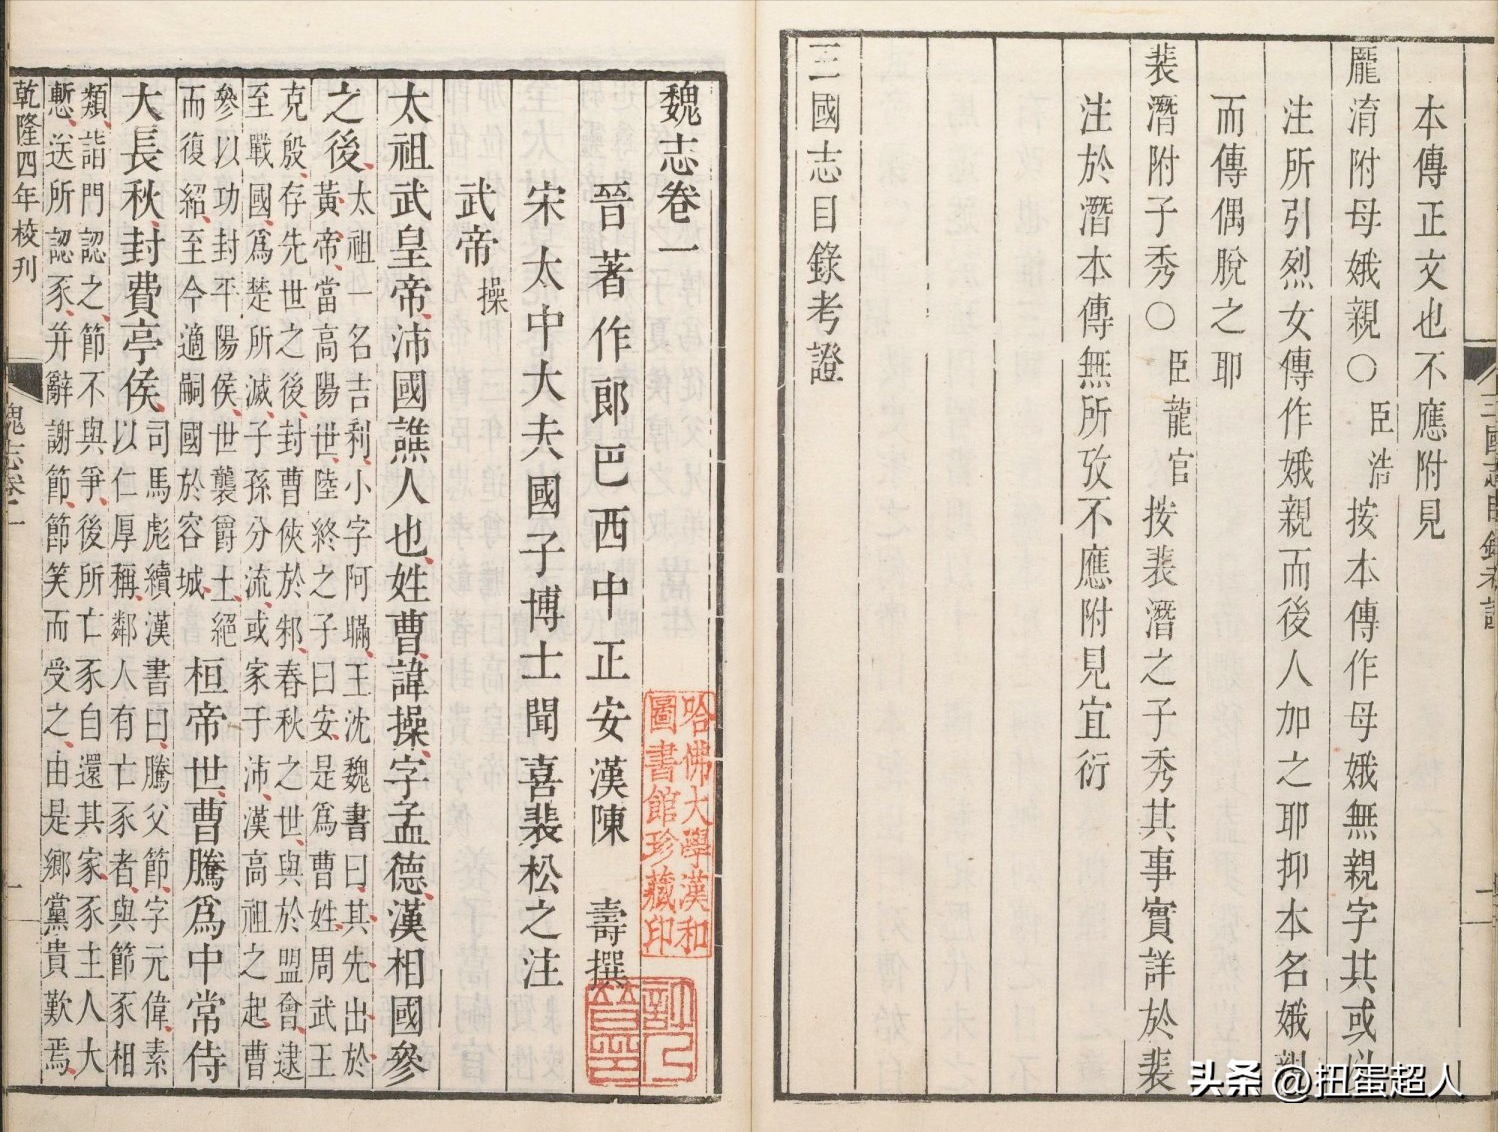 本傳正文也不應附見
龐淯附母娥親○臣浩按本傳作母娥無親字其或以
注所引烈女傳作娥親而後人加之耶抑本名娥親
而傳偶脫之耶
裴潛附子秀○臣龍官按裴潛之子秀其事實詳於裴
注於潛本傳無所攷不應附見宜衍
三國志目錄考證
魏志卷一
晉著作郎巴西中正安漢陳 壽撰
宋太中大夫國子博士聞喜裴松之注
武帝操
太祖武皇帝沛國譙人也姓曹諱操字孟德漢相國參
之後太祖一名吉利小字阿瞞王沈魏書曰其先出於
黃帝當高陽世陸終之子曰安是爲曹姓周武王
克殷存先世之後封曹俠於邾春秋之世與於盟會逮
至戰國爲楚所滅子孫分流或家于沛漢高祖之起曹
參以功封平陽侯世襲爵土絕
而復紹至今適嗣國於容城
桓帝世曹騰爲中常侍
大長秋封費亭侯司馬彪續漢書曰騰父節字元偉素
以仁厚稱鄰人有亡豕者與節豕相
類詣門認之節不與爭後所亡豕自還其家豕主人大
慙送所認豕并辭謝節節笑而受之由是鄉黨貴歎焉
乾隆四年校刊
魏志卷一
一
三國志目錄考證
哈佛大學漢和
圖書館珍藏印
头条 @扭蛋超人